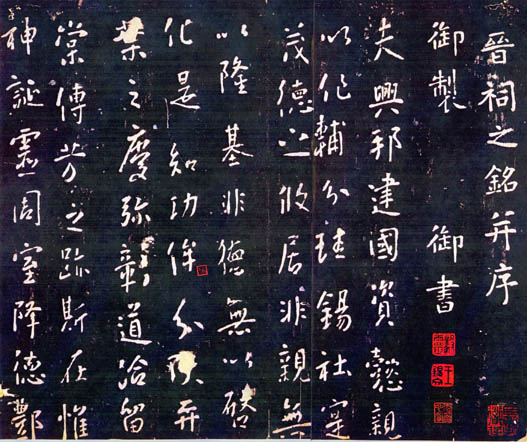 晉祠之銘并序
御製 御書
夫興邦建國資懿親
以作輔分珪錫社寔
茂德之攸居非親無
以隆基非德無以啓
化是知功侔分陝奕
葉之慶弥彰道洽留
棠傳芳之跡斯在惟
神誕靈周室降德酆